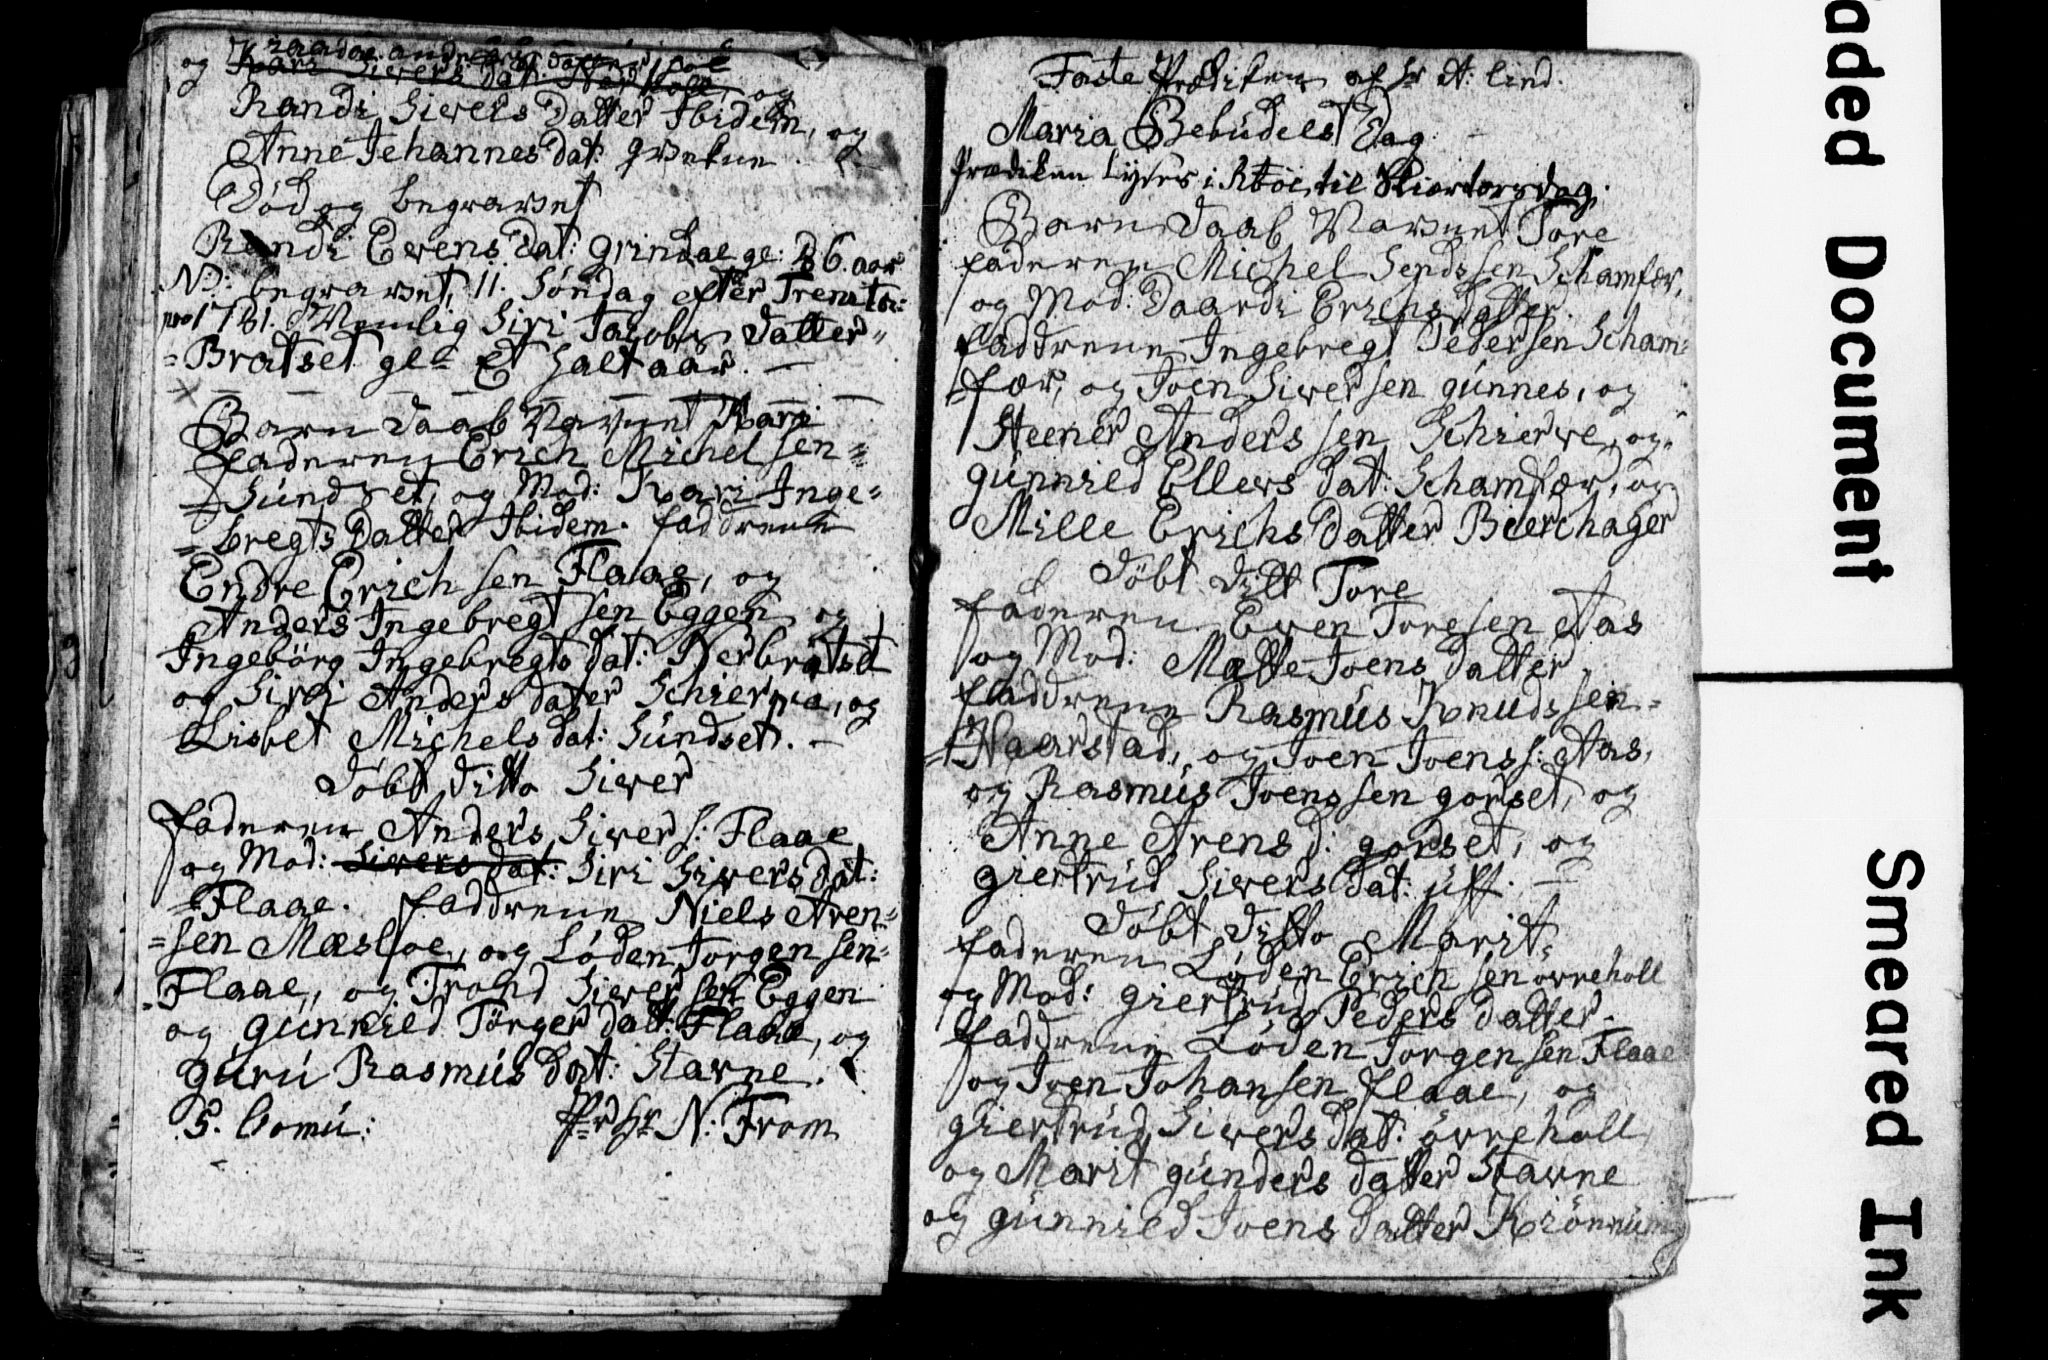 og Kari Sivers dat:
og
Randi Sivers Datter Ibidem, og
Anne Johannes dat:
Död og begravet
Randi Evens Dat: Grindal gl: 86 aar
NB: begravet 11. Söndag efter Trenita:
1781. Nemlig Siri Jacobs Datter
=Bratset gl= Et halt aar. —
Barn daab Navnet Kari
faderen Erich Michelsen=
=Sundset, og Mod: Kari Inge=
=bregts Datter Ibidem. faddrene
Endre Erichsen Flaae, og
Anders Ingebregtsen Eggen, og
Ingebörg Ingebregts dat: Nerbratset
og Siri Anders dater Schierva, og
Lisbet Michels dat: Sundset. —
Döbt Ditto Siver
faderen Anders Siver s: Flaae
og Mod: Sivers dat: Siri Sivers dat:
=Flaae. faddrene Niels Aren=
=sen Mæsloe, og Löden Jorgensen=
=Flaae, og Trond Siversen Eggen
og Gunnild Törger dat: Flaae, og
Guru Rasmus dat: Stavne.
Pr Hr N: From
Faste Prædiken af Hr A: Lind.
Maria Bebudels Dag. —
Prædiken Lyses i til Skiertorsdag.
Barn daab Navnet Tore
faderen Michel Sendssen Schamfer,
og Mod: Daardi Erichs datter.
faddrene Ingebregt Pedersen Scham=
=fær, og Joen Siversen Gunnes, og
Steener Anderssen Schierve, og
Gunnild Ellevs dat: Schamfær, og
Mille Erichs datter Bierchager
Döbt Ditt Tore
faderen Even Toresen Aas
og Mod: Matte Joens datter
faddrene Rasmus Knudssen=
=Naarstad, og Joen Joens s: Aas,
og Rasmus Joenssen Gorset, og
Anne Arens d: Gorset, og
Giertrud Sivers dat: Uff. —
Döbt Ditto Marit
faderen Löden Erichsen Örreholl
og Mod: Giertrud Peders datter.
faddrene Löden Jorgensen Flaae
og Joen Johansen Flaae, og
Giertrud Sivers dat: Örreholl
og Marit Gunders datter Stavne
og Gunnild Joens datter
aded Document
Smeared Ink